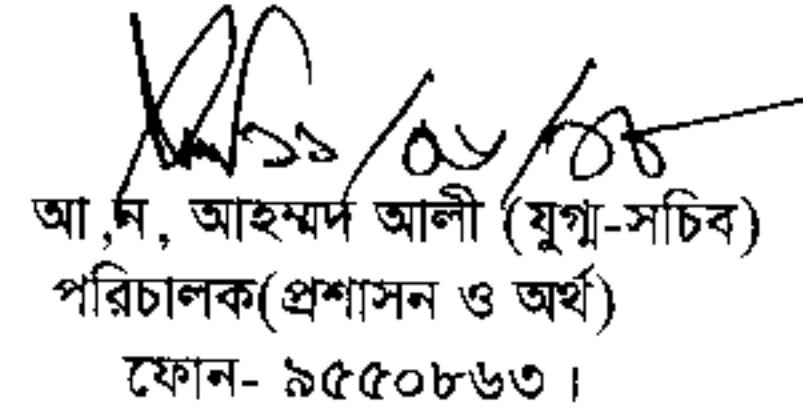 আ,ন, আহম্মদ আলী (যুগ্ম-সচিব)
পরিচালক(প্রশাসন ও অর্থ)
ফোন- ৯৫৫০৮৬৩।